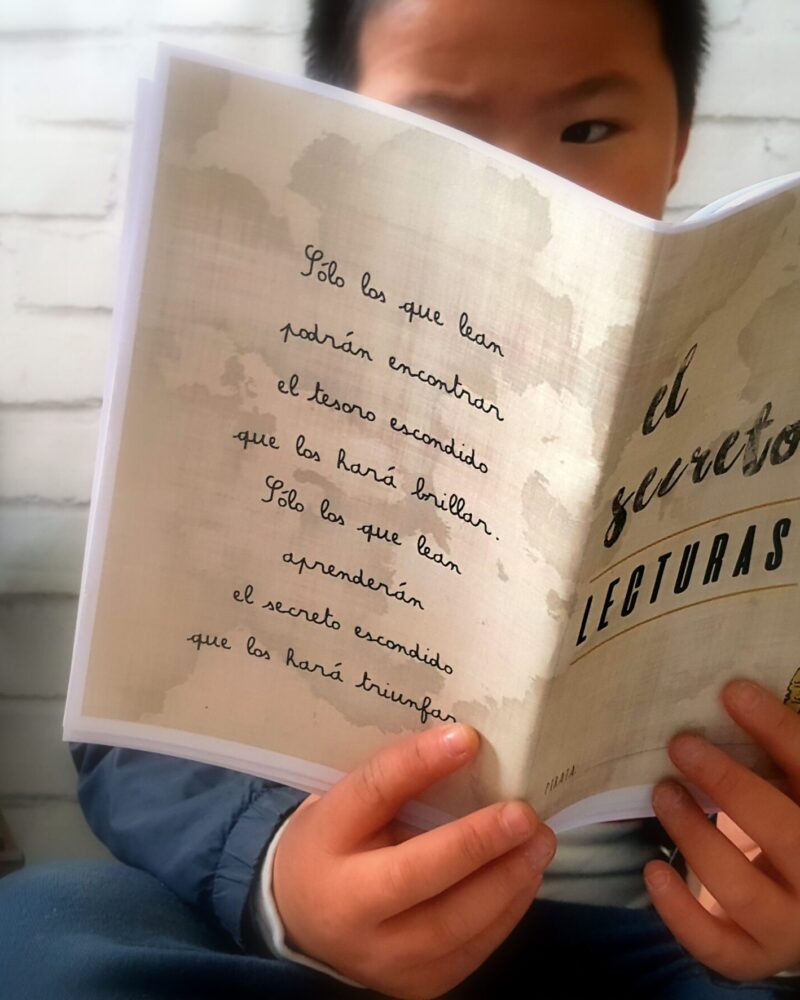 Sólo los que lean
podrán encontrar
el tesoro escondido
que los hará brillar.
Sólo los que lean
aprenderán
el secreto escondido
que los hará triunfar
el
secreto
LECTURAS
PIRATA